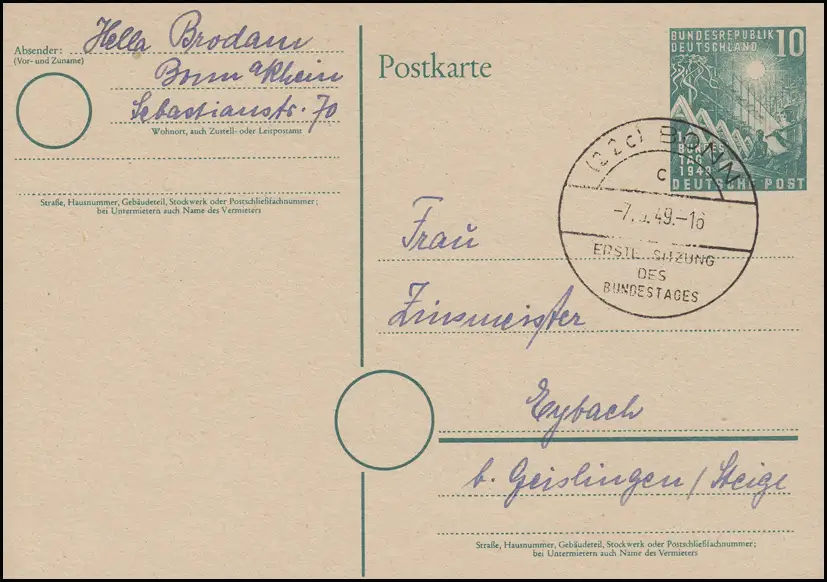 Absender: Hella Brodam
(Vor- und Zuname)
Bonn a/Rhein
Sebastianstr. 70
Wohnort, auch Zustell- oder Leitpostamt
Straße, Hausnummer, Gebäudeteil, Stockwerk oder Postschließfachnummer;
bei Untermietern auch Name des Vermieters
Postkarte
BUNDESREPUBLIK 10
DEUTSCHLAND
BUNDES
TAG
1949
DEUTSCHE POST
(22c) BONN
c
-7.9.49.-16
ERSTE SITZUNG
DES
BUNDESTAGES
Frau
Zinsmeister
Eybach
b. Geislingen/Steige
Straße, Hausnummer, Gebäudeteil, Stockwerk oder Postschließfachnummer;
bei Untermietern auch Name des Vermieters